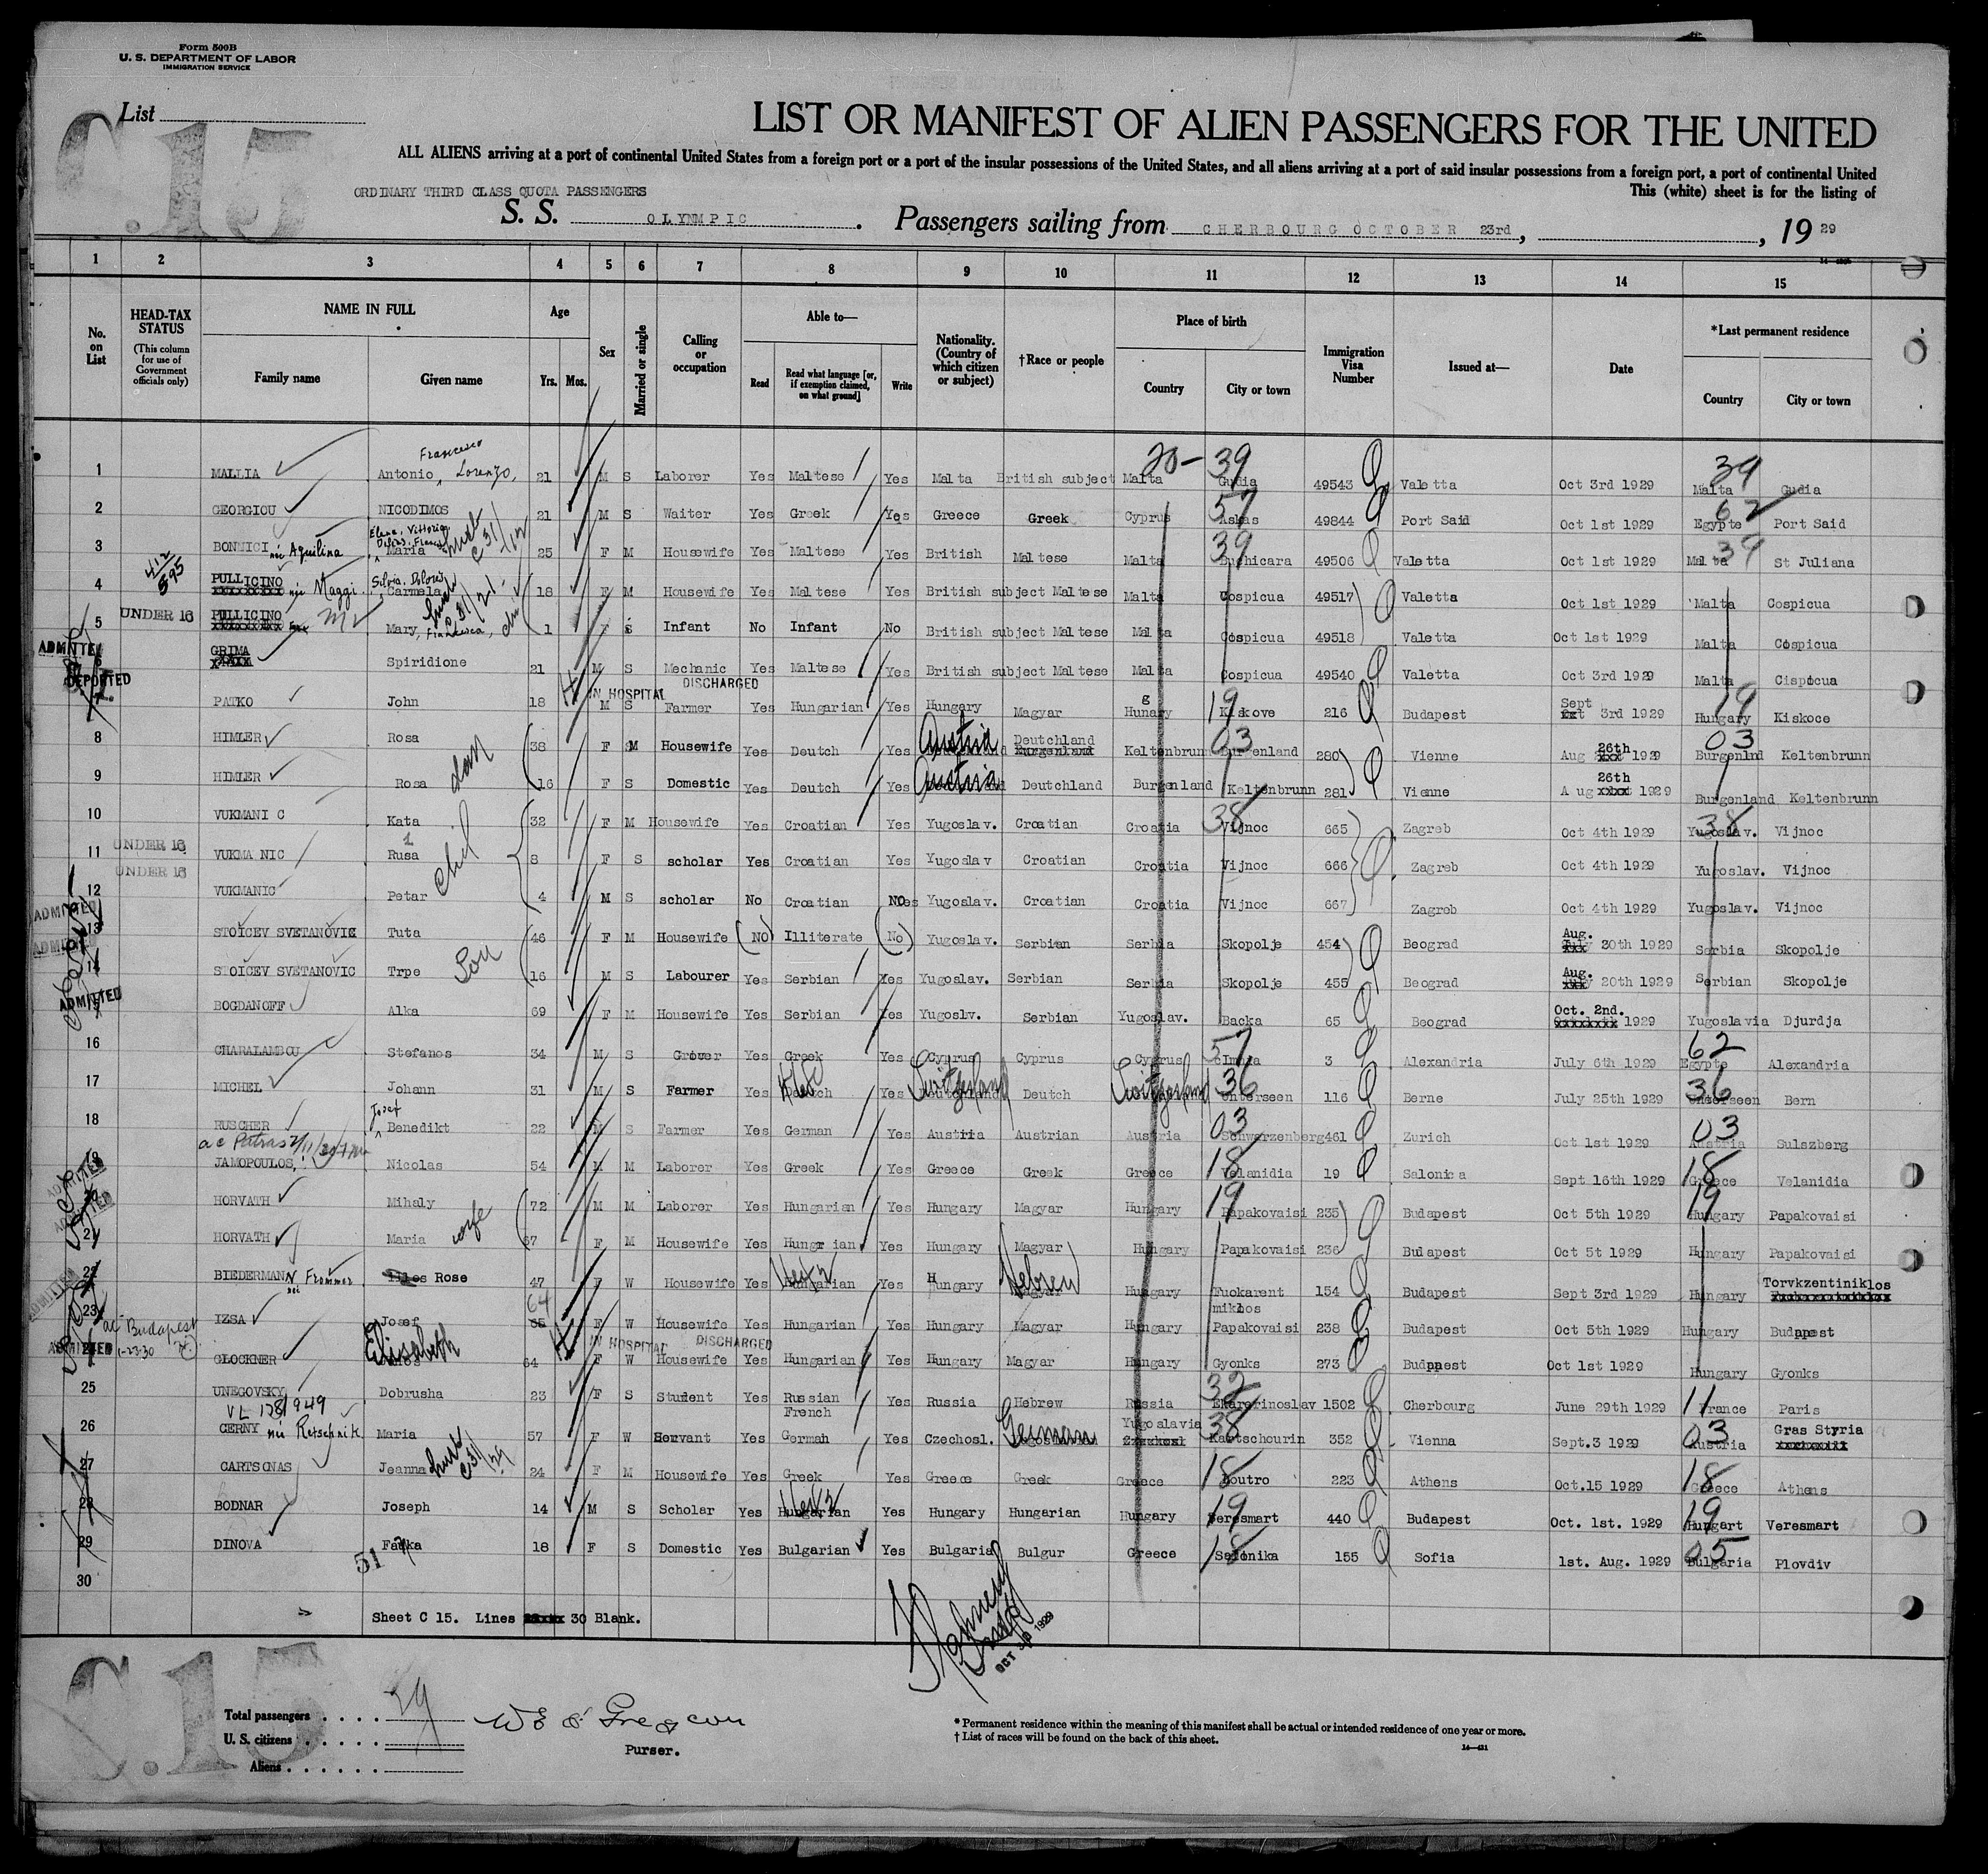 Form 500B
U. S. DEPARTMENT OF LABOR
IMMIGRATION SERVICE
List
C.15
LIST OR MANIFEST OF ALIEN PASSENGERS FOR THE UNITED
ALL ALIENS arriving at a port of continental United States from a foreign port or a port of the insular possessions of the United States, and all aliens arriving at a port of said insular possessions from a foreign port, a port of continental United
This (white) sheet is for the listing of
ORDINARY THIRD CLASS QUOTA PASSENGERS
S. S. OLYMPIC. Passengers sailing from CHERBOURG OCTOBER 23rd, , 19 29
1 2 3 4 5 6 7 8 9 10 11 12 13 14 15
No. on List
HEAD-TAX STATUS (This column for use of Government officials only)
NAME IN FULL Family name Given name
Age Yrs. Mos.
Sex
Married or single
Calling or occupation
Able to— Read Read what language [or, if exemption claimed, on what ground] Write
Nationality. (Country of which citizen or subject)
†Race or people
Place of birth Country City or town
Immigration Visa Number
Issued at—
Date
*Last permanent residence Country City or town
1 MALLIA Antonio, Francesco Lorenzo, 21 M S Laborer Yes Maltese Yes Malta British subject Malta 20- 39 Gudia 49543 Valetta Oct 3rd 1929 39 Malta Gudia
2 GEORGIOU NICODIMOS 21 M S Waiter Yes Greek Yes Greece Greek Cyprus 57 Askas 49844 Port Said Oct 1st 1929 62 Egypte Port Said
3 BONNICI née Aquilina Elena, Vittoria Maria 25 F M Housewife Yes Maltese Yes British Maltese Malta 39 Buchicara 49506 Valetta Oct 1st 1929 39 Malta St Juliana
4 PULLICINO née Maggi Silvia, Dolores Carmela 18 F M Housewife Yes Maltese Yes British subject Maltese Malta Cospicua 49517 Valetta Oct 1st 1929 Malta Cospicua
5 UNDER 16 PULLICINO Mary, Francesca, 1 F S Infant No Infant No British subject Maltese Malta Cospicua 49518 Valetta Oct 1st 1929 Malta Cospicua
ADMITTED
6 GRIMA Spiridione 21 M S Mechanic Yes Maltese Yes British subject Maltese Malta Cospicua 49540 Valetta Oct 3rd 1929 Malta Cispicua
DEPORTED IN HOSPITAL DISCHARGED
7 PATKO John 18 M S Farmer Yes Hungarian Yes Hungary Magyar Hungary 19 Kiskove 216 Budapest Sept 3rd 1929 19 Hungary Kiskoce
8 HIMLER Rosa 38 F M Housewife Yes Deutch Yes Austria Deutchland Keltenbrunn 03 Burgenland 280 Vienne Aug 26th 1929 03 Burgenlnd Keltenbrunn
9 HIMLER Rosa 16 F S Domestic Yes Deutch Yes Austria Deutchland Burgenland Keltenbrunn 281 Vienne Aug 26th 1929 Burgenland Keltenbrunn
10 VUKMANI C Kata 32 F M Housewife Yes Croatian Yes Yugoslav. Croatian Croatia 38 Vijnoc 665 Zagreb Oct 4th 1929 38 Yugoslav. Vijnoc
11 UNDER 16 VUKMA NIC Rusa 8 F S scholar Yes Croatian Yes Yugoslav Croatian Croatia Vijnoc 666 Zagreb Oct 4th 1929 Yugoslav. Vijnoc
12 UNDER 16 VUKMANIC Petar 4 M S scholar No Croatian No Yugoslav. Croatian Croatia Vijnoc 667 Zagreb Oct 4th 1929 Yugoslav. Vijnoc
ADMITTED
13 STOICEV SVETANOVIC Tuta 46 F M Housewife (NO) Illiterate (No) Yugoslav. Serbian Serbia Skopolje 454 Beograd Aug. 20th 1929 Serbia Skopolje
ADMITTED
14 STOICEV SVETANOVIC Trpe Son 16 M S Labourer Yes Serbian Yes Yugoslav. Serbian Serbia Skopolje 455 Beograd Aug. 20th 1929 Serbian Skopolje
ADMITTED
15 BOGDANOFF Alka 69 F M Housewife Yes Serbian Yes Yugoslv. Serbian Yugoslav. Backa 65 Beograd Oct. 2nd. 1929 Yugoslavia Djurdja
16 CHARALAMBOU Stefanos 34 M S Grover Yes Greek Yes Cyprus Cyprus Cyprus 57 3 Alexandria July 6th 1929 62 Egypte Alexandria
17 MICHEL Johann 31 M S Farmer Yes Yes Switzerland Deutch Switzerland 36 Unterseen 116 Berne July 25th 1929 36 Unterseen Bern
18 RUSCHER Josef Benedikt 22 M S Farmer Yes German Yes Austria Austrian Austria 03 Schwarzenberg 461 Zurich Oct 1st 1929 03 Austria Sulszberg
19 JAMOPOULOS, Nicolas 54 M M Laborer Yes Greek Yes Greece Greek Greece 18 Velanidia 19 Salonica Sept 16th 1929 18 Greece Velanidia
ADMITTED
20 HORVATH Mihaly 72 M M Laborer Yes Hungarian Yes Hungary Magyar Hungary 19 Papakovaisi 235 Budapest Oct 5th 1929 19 Hungary Papakovaisi
ADMITTED
21 HORVATH Maria wife 67 F M Housewife Yes Hungarian Yes Hungary Magyar Hungary Papakovaisi 236 Budapest Oct 5t 1929 Hungary Papakovaisi
22 BIEDERMANN, née Frommer Rose 47 F W Housewife Yes Hungarian Yes Hungary Hebrew Hungary Tuokarent miklos 154 Budapest Sept 3rd 1929 Hungary Torvkzentiniklos
ADMITTED
23 IZSA Josef 64 F W Housewife Yes Hungarian Yes Hungary Magyar Hungary Papakovaisi 238 Budapest Oct 5th 1929 Hungary Budapest
ac Budapest 1-23-30
ADMITTED IN HOSPITAL DISCHARGED
24 GLOCKNER Elisabeth 64 F W Housewife Yes Hungarian Yes Hungary Magyar Hungary Gyonks 273 Budapest Oct 1st 1929 Hungary Gyonks
25 UNEGOVSKY Dobrusha 23 F S Student Yes Russian French Yes Russia Hebrew Russia 32 Ekaterinoslav 1502 Cherbourg June 29th 1929 11 France Paris
26 CERNY née Retschnik Maria 57 F W Servant Yes German Yes Czechosl. German Yugoslavia 38 Kaetschourin 352 Vienna Sept.3 1929 03 Austria Gras Styria
27 CARTSONAS Jeanna 24 F M Housewife Yes Greek Yes Greece Greek Greece 18 Loutro 223 Athens Oct.15 1929 18 Greece Athens
28 BODNAR Joseph 14 M S Scholar Yes Hungarian Yes Hungary Hungarian Hungary 19 Veresmart 440 Budapest Oct. 1st. 1929 19 Hungart Veresmart
29 DINOVA 18 F S Domestic Yes Bulgarian Yes Bulgaria Bulgur Greece 18 Salonika 155 Sofia 1st. Aug. 1929 05 Bulgaria Plovdiv
51
30
Sheet C 15. Lines 30 Blank.
OCT 30 1929
C.15
Total passengers . . . . 29
U. S. citizens . . . . . .
Aliens . . . . . .
Purser.
* Permanent residence within the meaning of this manifest shall be actual or intended residence of one year or more.
† List of races will be found on the back of this sheet.
14—421